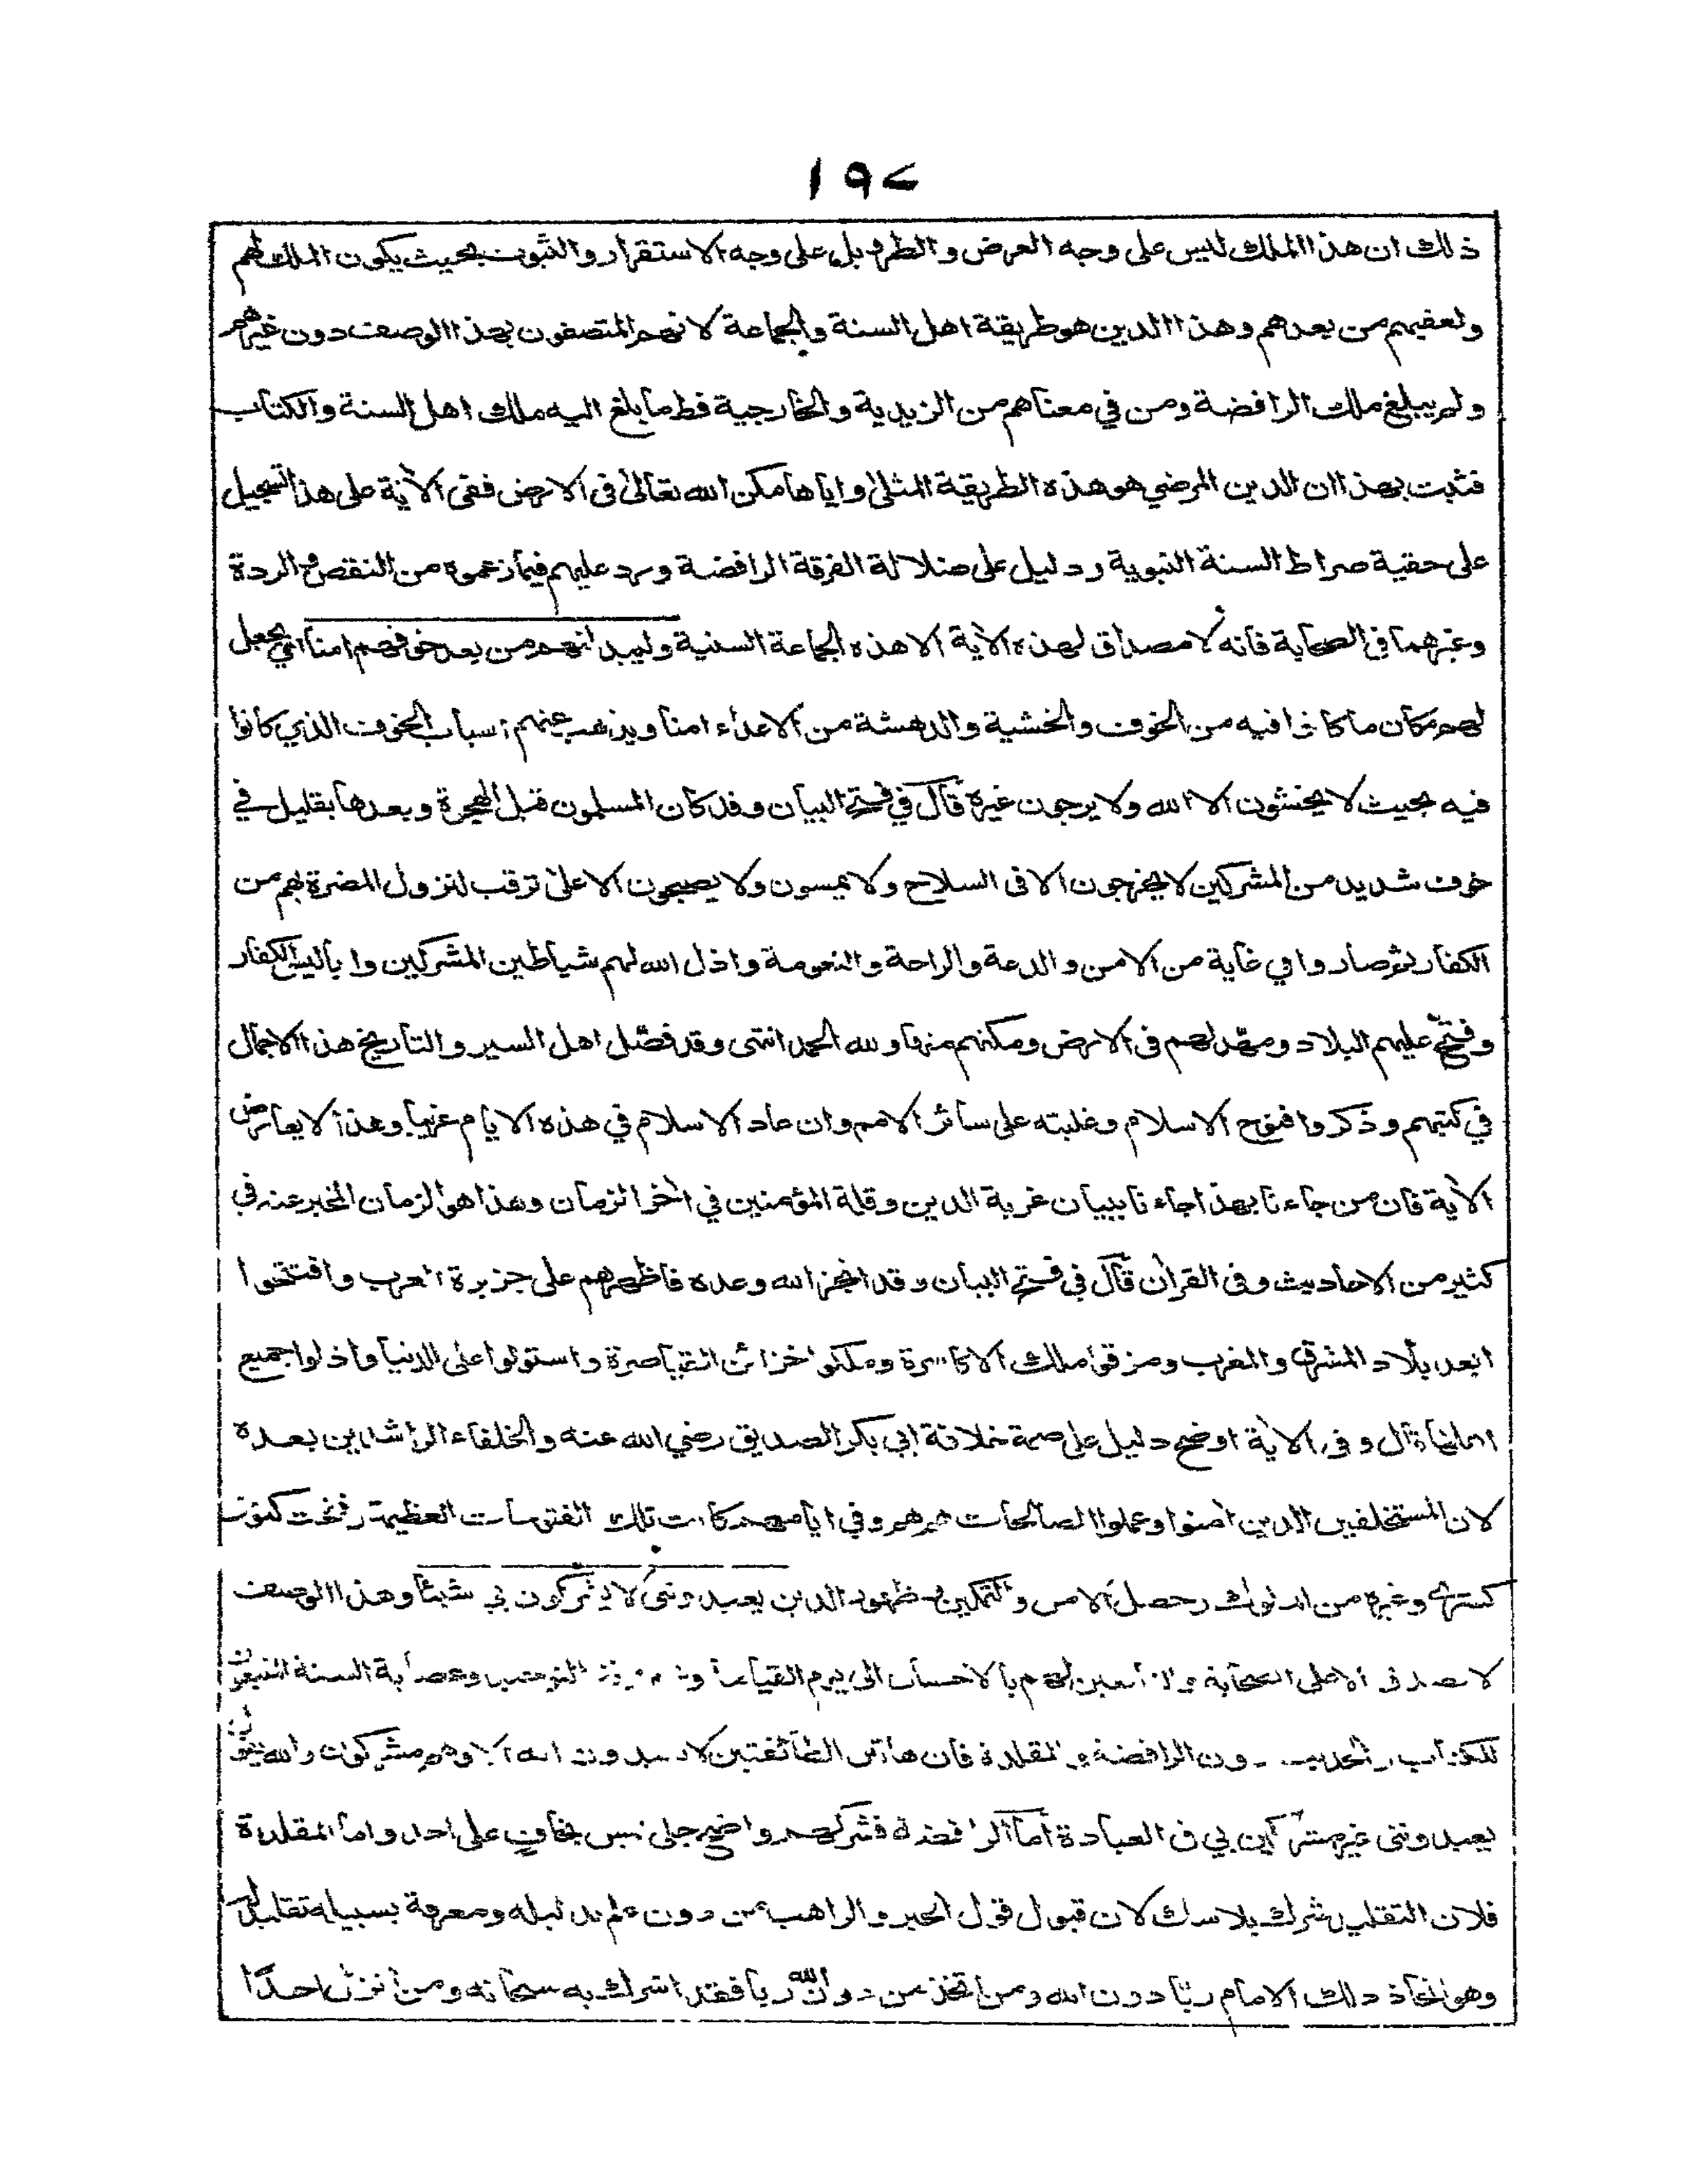 ١٩٧
ذلك ان هذا الملك ليس على وجه العرض والطرو بل على وجه الاستقرار والثبوت بحيث يكون الملك لهم
ولعقبهم من بعدهم وهذا الدين هو طريقة اهل السنة والجماعة لانهم المتصفون بهذا الوصف دون غيرهم
ولم يبلغ ملك الرافضة ومن في معناهم من الزيدية والخارجية قط ما بلغ اليه ملك اهل السنة والكتاب
فثبت بهذا ان الدين المرضي هو هذه الطريقة المثلى واياها مكن الله تعالى فى الارض ففى الآية على هذا تسجيل
على حقية صراط السنة النبوية ودليل على ضلالة الفرقة الرافضة ورد عليهم فيما زعموه من النقص والردة
وغيرهما فى الصحابة فانه لا مصداق لهذه الآية الا هذه الجماعة السنية وليبدلنهم من بعد خوفهم امنا اي يجعل
لهم مكان ما كانوا فيه من الخوف والخشية والدهشة من الاعداء امنا ويذهب عنهم اسباب الخوف الذي كانوا
فيه بحيث لا يخشون الا الله ولا يرجون غيره قال في فتح البيان وقد كان المسلمون قبل الهجرة وبعدها بقليل في
خوف شديد من المشركين لا يخرجون الا فى السلاح ولا يمسون ولا يصبحون الا على ترقب لنزول المضرة بهم من
الكفار ثم صاروا في غاية من الامن والدعة والراحة والنعومة واذل الله لهم شياطين المشركين واباليس الكفار
وفتح عليهم البلاد ومهد لهم فى الارض ومكنهم منها ولله الحمد انتهى وقد فصّل اهل السير والتاريخ هذا الاجمال
في كتبهم وذكروا فتوح الاسلام وغلبته على سائر الامم وان عاد الاسلام في هذه الايام غريبا وهذا لا يعارض
الآية فان من جاءنا بهذا جاءنا ببيان غربة الدين وقلة المؤمنين في اخر الزمان وهذا هو الزمان المخبر عنه في
كثير من الاحاديث وفى القرآن قال في فتح البيان وقد انجز الله وعده فاظهرهم على جزيرة العرب وافتتحوا
ابعد بلاد المشرق والمغرب ومزقوا ملك الاكاسرة وملكوا خزائن القياصرة واستولوا على الدنيا واذلوا جميع
اهلها قال وفى الآية اوضح دليل على صحة خلافة ابي بكر الصديق رضي الله عنه والخلفاء الراشدين بعده
لان المستخلفين الذين آمنوا وعملوا الصالحات هم هم وفي ايامهم كانت تلك الفتوحات العظيمة وفتحت كنوز
كسرى وغيره من الملوك وحصل الامن والتمكين وظهور الدين يعبدونني لا يشركون بي شيئا وهذا الوصف
لا يصدق الا على الصحابة والتابعين لهم بالاحسان الى يوم القيامة التوحيد وعصابة السنة المتبعون
للكتاب والحديث دون الرافضة والمقلدة فان هاتين الطائفتين لا يعبدون الله الا وهم مشركون والله يقول
يعبدونني غير مشركين بي فى العبادة اما الرافضة فشركهم واضح جلي ليس بخافٍ على احد واما المقلدة
فلان التقليد شرك بلا شك لان قبول قول الحبر والراهب من دون علم بدليله ومعرفة بسبيله تقليد له
وهو اتخاذ ذلك الامام ربّا دون الله ومن اتخذ من دون الله ربا فقد اشرك به سبحانه ومن انزل احدًا